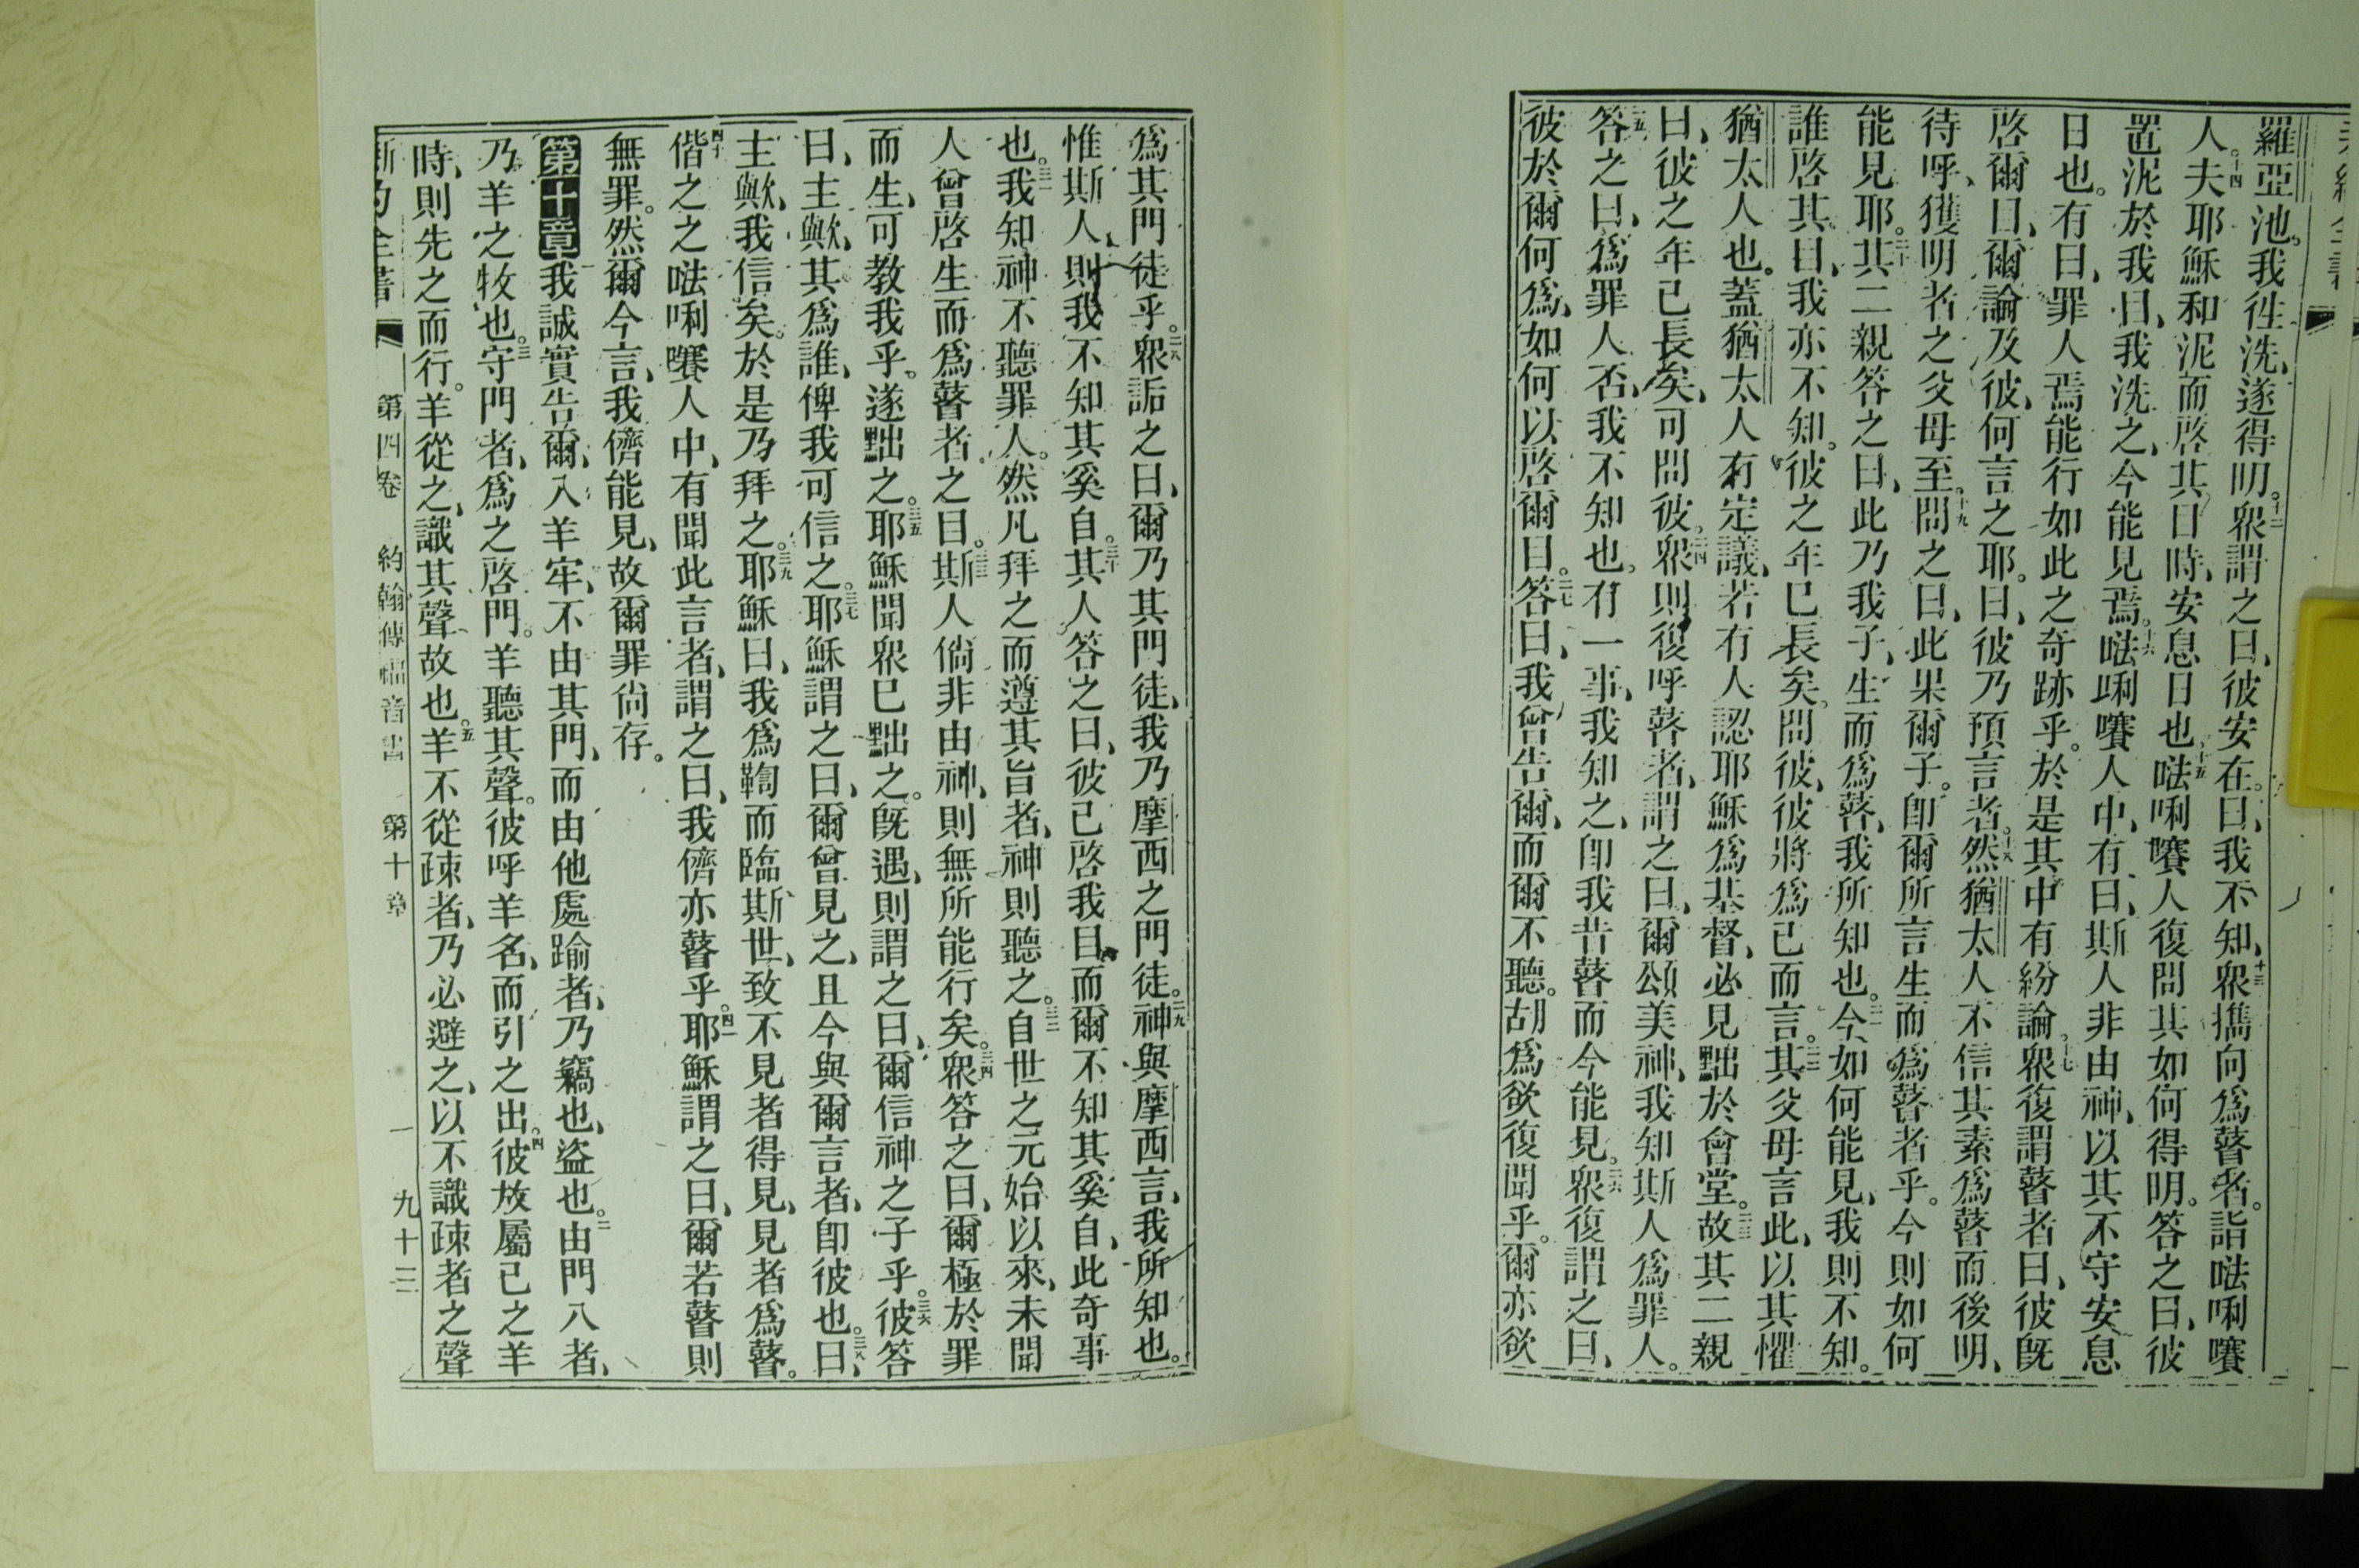 羅亞池。我徃洗、遂得明。十二衆謂之曰、彼安在。曰、我不知、十三衆攜向爲瞽者。詣㕸唎㘔
人。十四夫耶穌和泥而啓其目時、安息日也、十五㕸唎㘔人復問其如何得明。答之曰、彼
置泥於我目、我洗之、今能見焉。十六㕸唎㘔人中、有曰、斯人非由神、以其不守安息
日也。有曰、罪人焉能行如此之奇跡乎。於是其中有紛論。十七衆復謂瞽者曰、彼旣
啓爾目、爾論及彼、何言之耶。曰、彼乃預言者。十八然猶太人不信其素爲瞽而後明、
待呼獲明者之父母至。十九問之曰、此果爾子。卽爾所言生而爲瞽者乎。今則如何
能見耶。二十其二親答之曰、此乃我子、生而爲瞽、我所知也。二一今如何能見、我則不知。
誰啓其目、我亦不知。彼之年已長矣。問彼、彼將爲己而言。二二其父母言此、以其懼
猶太人也。蓋猶太人有定議、若有人認耶穌爲基督、必見黜於會堂。二三故其二親
曰、彼之年已長矣、可問彼。二四衆則復呼瞽者、謂之曰、爾頌美神、我知斯人爲罪人。
二五答之曰、爲罪人否、我不知也。有一事、我知之、卽我昔瞽而今能見。二六衆復謂之曰、
彼於爾何爲、如何以啓爾目。二七答曰、我曾告爾、而爾不聽。胡爲欲復聞乎。爾亦欲
爲其門徒乎。二八衆詬之曰、爾乃其門徒、我乃摩西之門徒。二九神與摩西言、我所知也。
惟斯人、則我不知其奚自。三十其人答之曰、彼已啓我目、而爾不知其奚自、此奇事
也。三一我知神不聽罪人。然凡拜之而遵其旨者、神則聽之。三二自世之元始以來、未聞
人曾啓生而爲瞽者之目。三三斯人倘非由神、則無所能行矣。三四衆答之曰、爾極於罪
而生、可敎我乎。遂黜之。三五耶穌聞衆已黜之。旣遇、則謂之曰、爾信神之子乎。三六彼答
曰、主歟、其爲誰、俾我可信之。三七耶穌謂之曰、爾曾見之、且今與爾言者、卽彼也。三八曰、
主歟、我信矣。於是乃拜之。三九耶穌曰、我爲鞫而臨斯世、致不見者得見、見者爲瞽。
四十偕之之㕸唎㘔人中、有聞此言者、謂之曰、我儕亦瞽乎。四一耶穌謂之曰、爾若瞽則
無罪。然爾今言、我儕能見、故爾罪尙存。
第十章我誠實告爾、入羊牢、不由其門、而由他處踰者、乃竊也、盜也。二由門入者、
乃羊之牧也。三守門者、爲之啓門。羊聽其聲。彼呼羊名、而引之出。四彼放屬己之羊
時、則先之而行。羊從之、識其聲故也。五羊不從疎者、乃必避之、以不識疎者之聲
新約全書 第四卷 約翰傳福音書 第十章 一 九十三